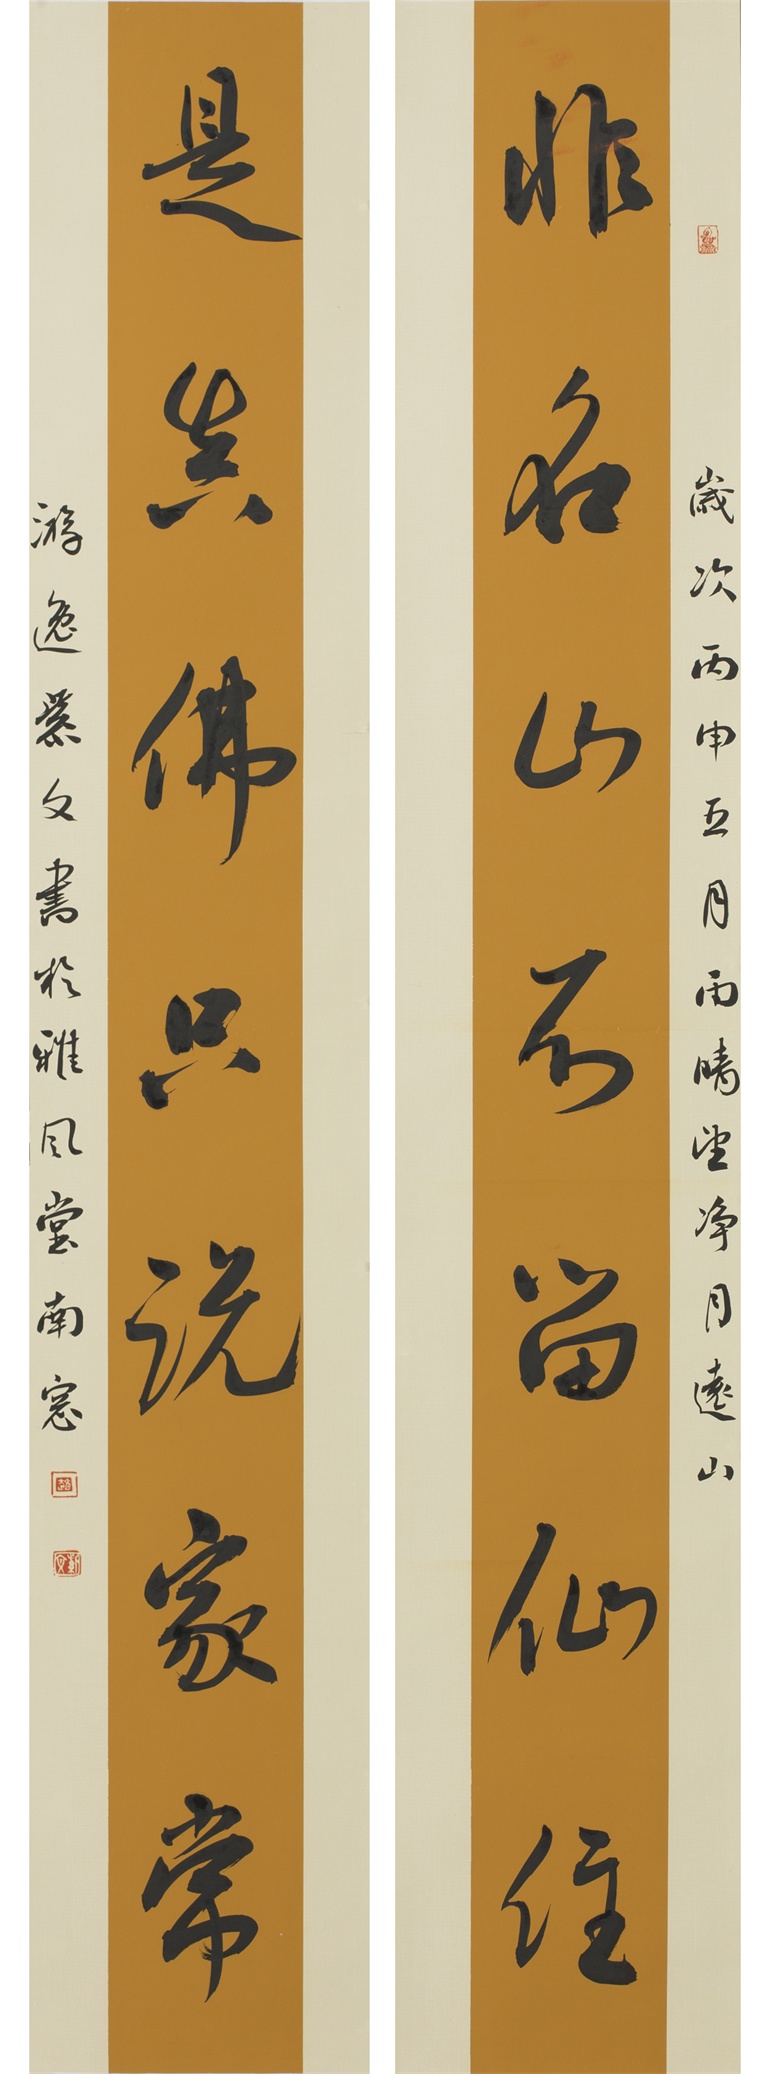 歲次丙申五月雨晴望净月遠山
非名山不留仙住
是真佛只説家常
游逸繁文書於雅风堂南窓